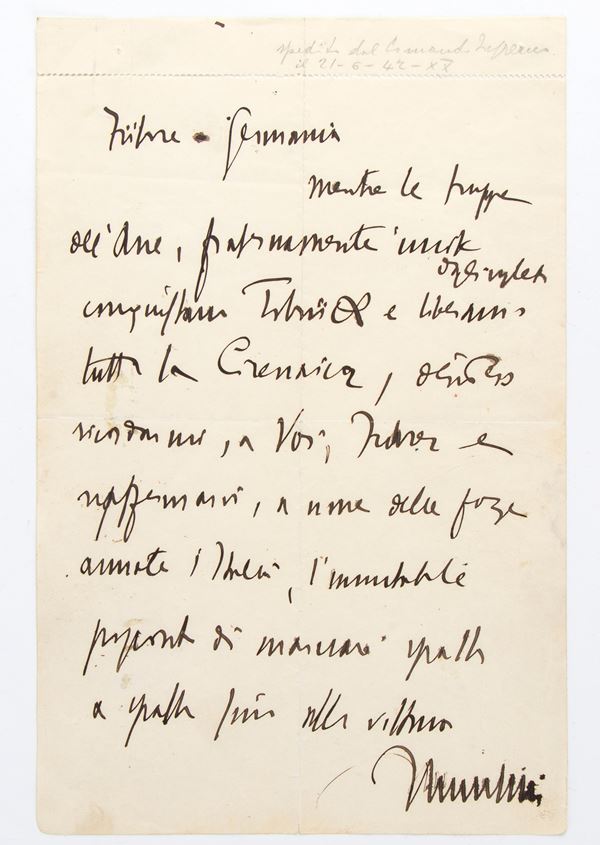 spedito dal Comando Supremo
il 21-6-42-XX
Führer - Germania
mentre le truppe
dell'Asse, fraternamente unite
dagli inglesi
conquistano Tobruk e liberano
tutta la Cirenaica, desidero
ricordarmi, a Voi, Führer e
riaffermarvi, a nome delle forze
armate d'Italia, l'immutabile
proposito di marciare spalla
a spalla fino alla vittoria
Mussolini